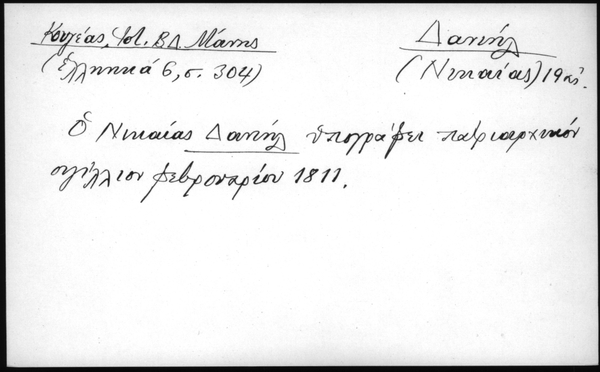 Κουγέας, Ἱστ. ΒΔ. Μάνης
(Ἑλληνικά 6, σ. 304)
Δανιήλ
(Νικαίας) 19 αἰ.
Ὁ Νικαίας Δανιήλ ὑπογράφει πατριαρχικόν
σιγίλλιον φεβρουαρίου 1811.